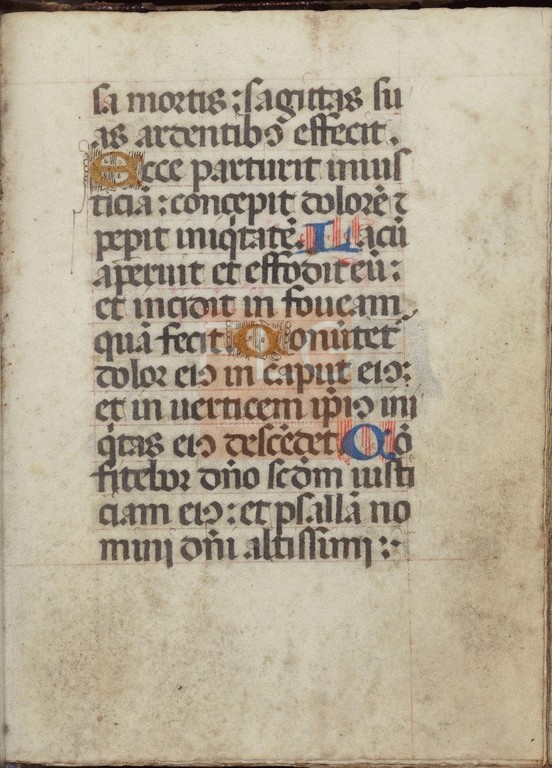 sa mortis : sagittas su
as ardentibꝰ effecit .
Ecce parturit inius
ticia : concepit dolorē ⁊
pepit iniqͥtatē . Lacū
aperuit et effodit eū :
et incidit in foueam
quā fecit Conūtet᷑
dolor eiꝰ in caput eiꝰ :
et in uerticem ip̄iꝰ ini
qͥtas eiꝰ descēdet Cō
fitebor dn̄o scd̄m iusti
ciam eiꝰ : et psallā no
mini dn̄i altissimi :·